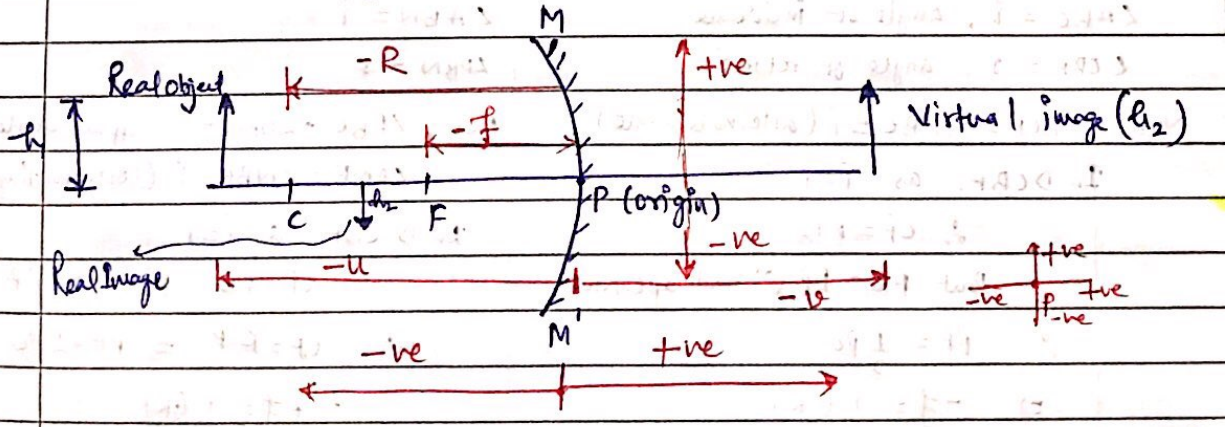 M
-R
+ve
Real object
-f
Virtual image (h2)
-h
C
h2
F
P (origin)
-ve
Real Image
-u
-v
+ve
-ve
P
+ve
-ve
M'
-ve
+ve